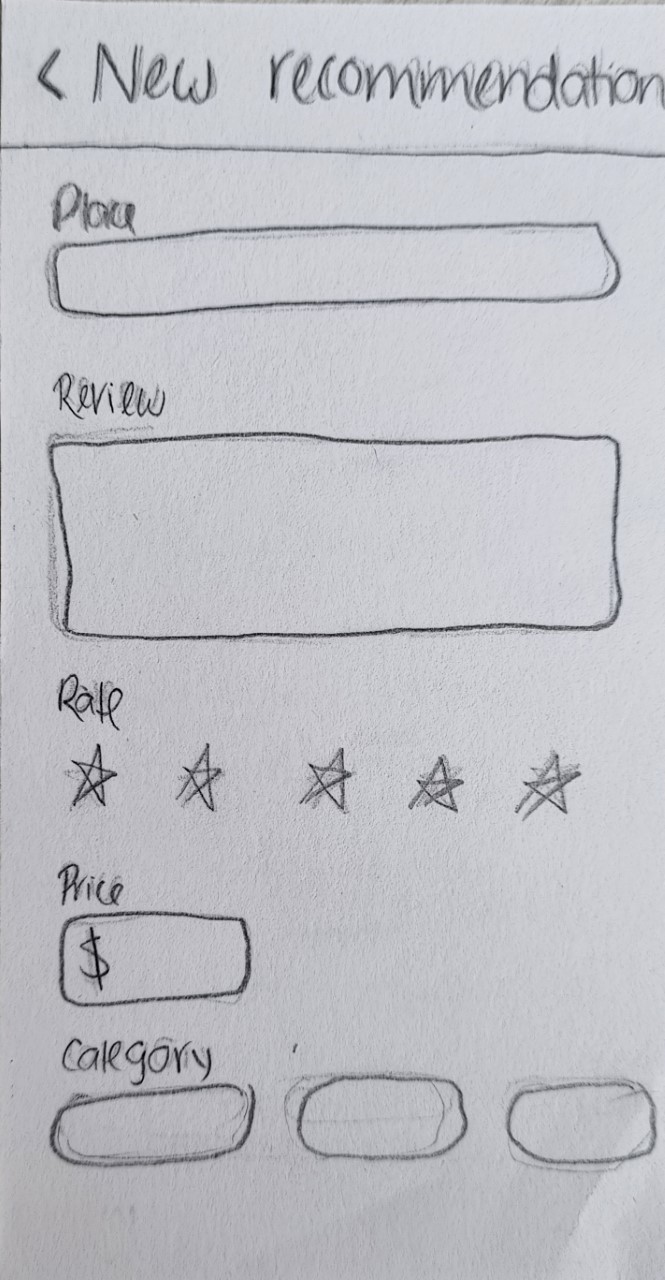 < New recommendation
Place
Review
Rate
Price
$
Category